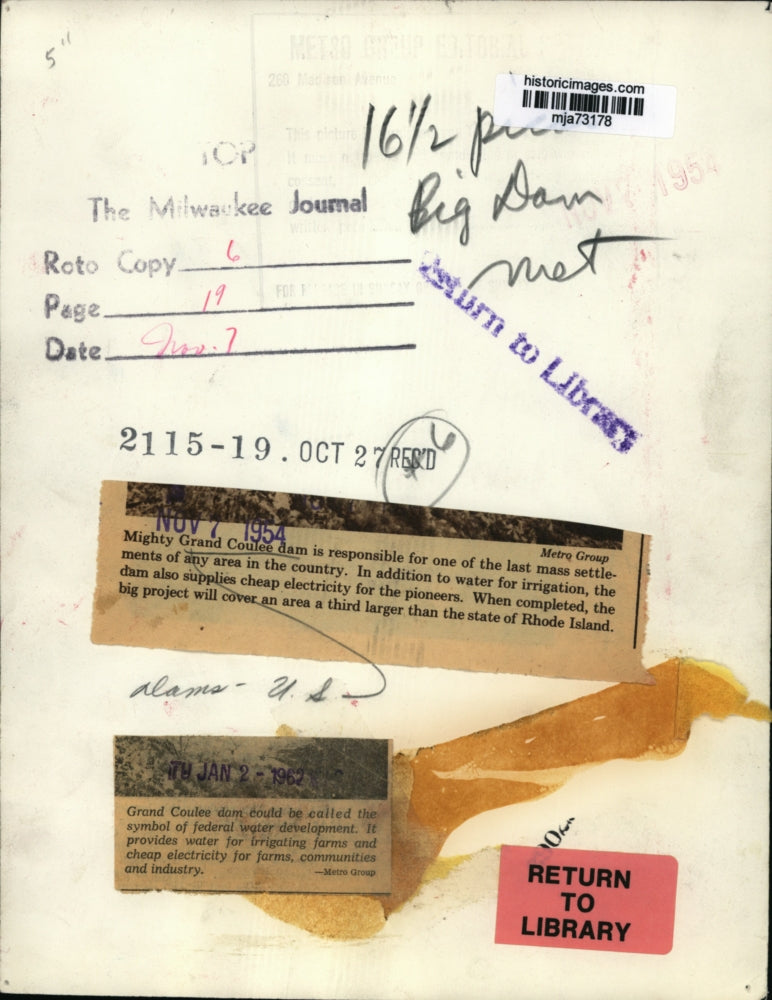 5"
METRO GROUP EDITORIAL
260 Madison Avenue
historicimages.com
mja73178
16 1/2
This picture
It must
consent.
TOP
The Milwaukee Journal
Big Dam
met
NOV 7 1954
Roto Copy 6
Page 19
Date Nov. 7
FOR RELEASE IN SUNDAY
Return to Library
2115-19. OCT 27 REC'D
6
NOV 7 1954
Metro Group
Mighty Grand Coulee dam is responsible for one of the last mass settle-
ments of any area in the country. In addition to water for irrigation, the
dam also supplies cheap electricity for the pioneers. When completed, the
big project will cover an area a third larger than the state of Rhode Island.
dams - U. S.
JAN 2 - 1962
Grand Coulee dam could be called the
symbol of federal water development. It
provides water for irrigating farms and
cheap electricity for farms, communities
and industry.
—Metro Group
RETURN
TO
LIBRARY